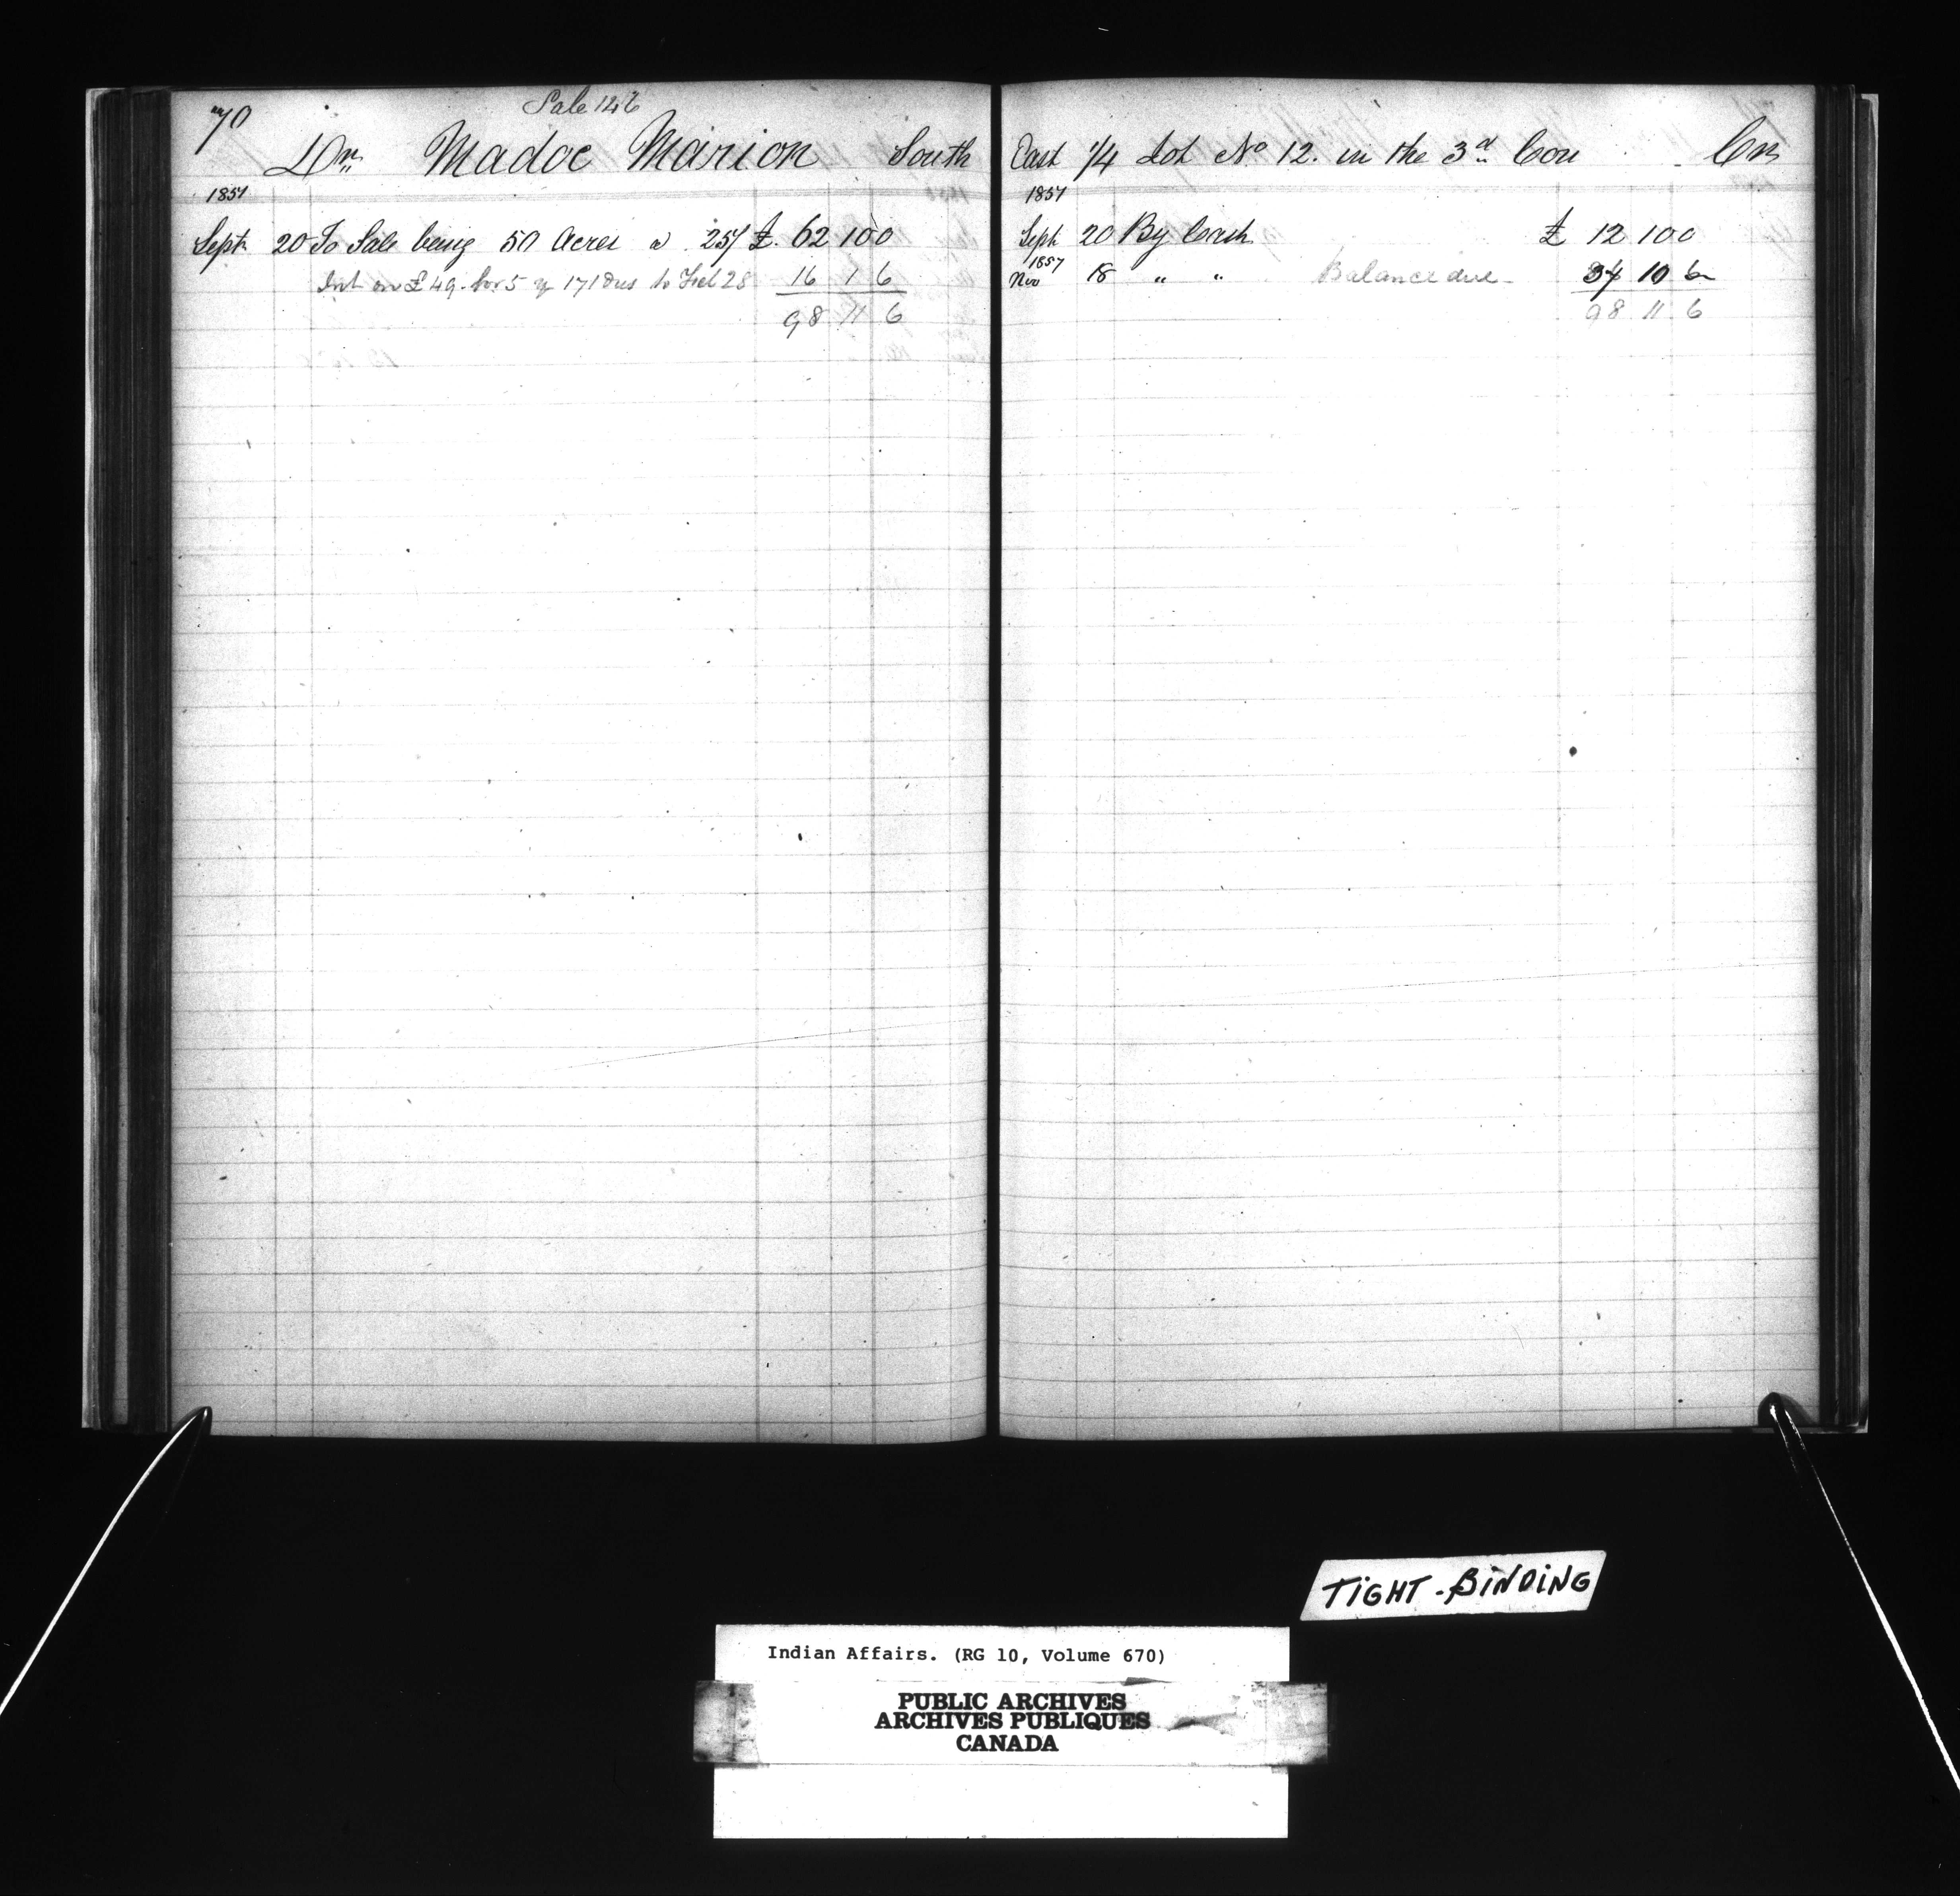 70
Sale 126
Dr. Madoc Marion South
1851
Sept 20 To Sale being 50 Acres a 25/ £. 62 10 0
Int on £49. for 5 y 171 Dys to Feb 28 16 1 6
98 11 6
East 1/4 Lot No 12. in the 3d Con Cr
1851
Sept 20 By Cash £ 12 10 0
1857
Nov 18 " " Balance due 34 10 6
98 11 6
TIGHT-BINDING
Indian Affairs. (RG 10, Volume 670)
PUBLIC ARCHIVES
ARCHIVES PUBLIQUES
CANADA